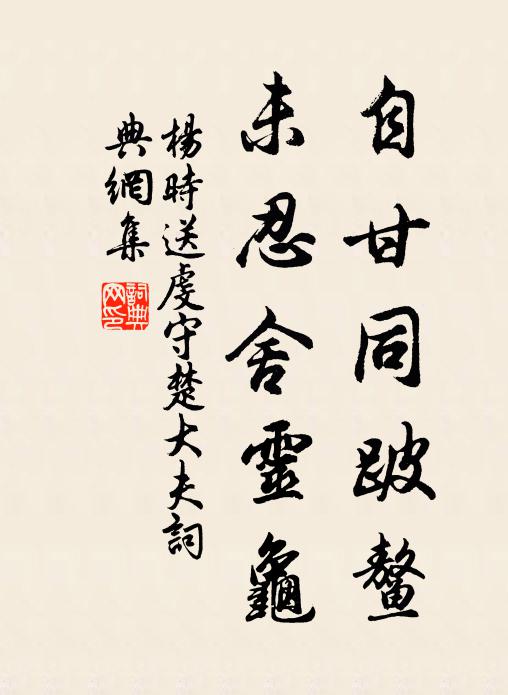 自甘同跛鳌
未忍舍靈龜
楊時送虔守楚大夫詞
典網集
詞典
网印